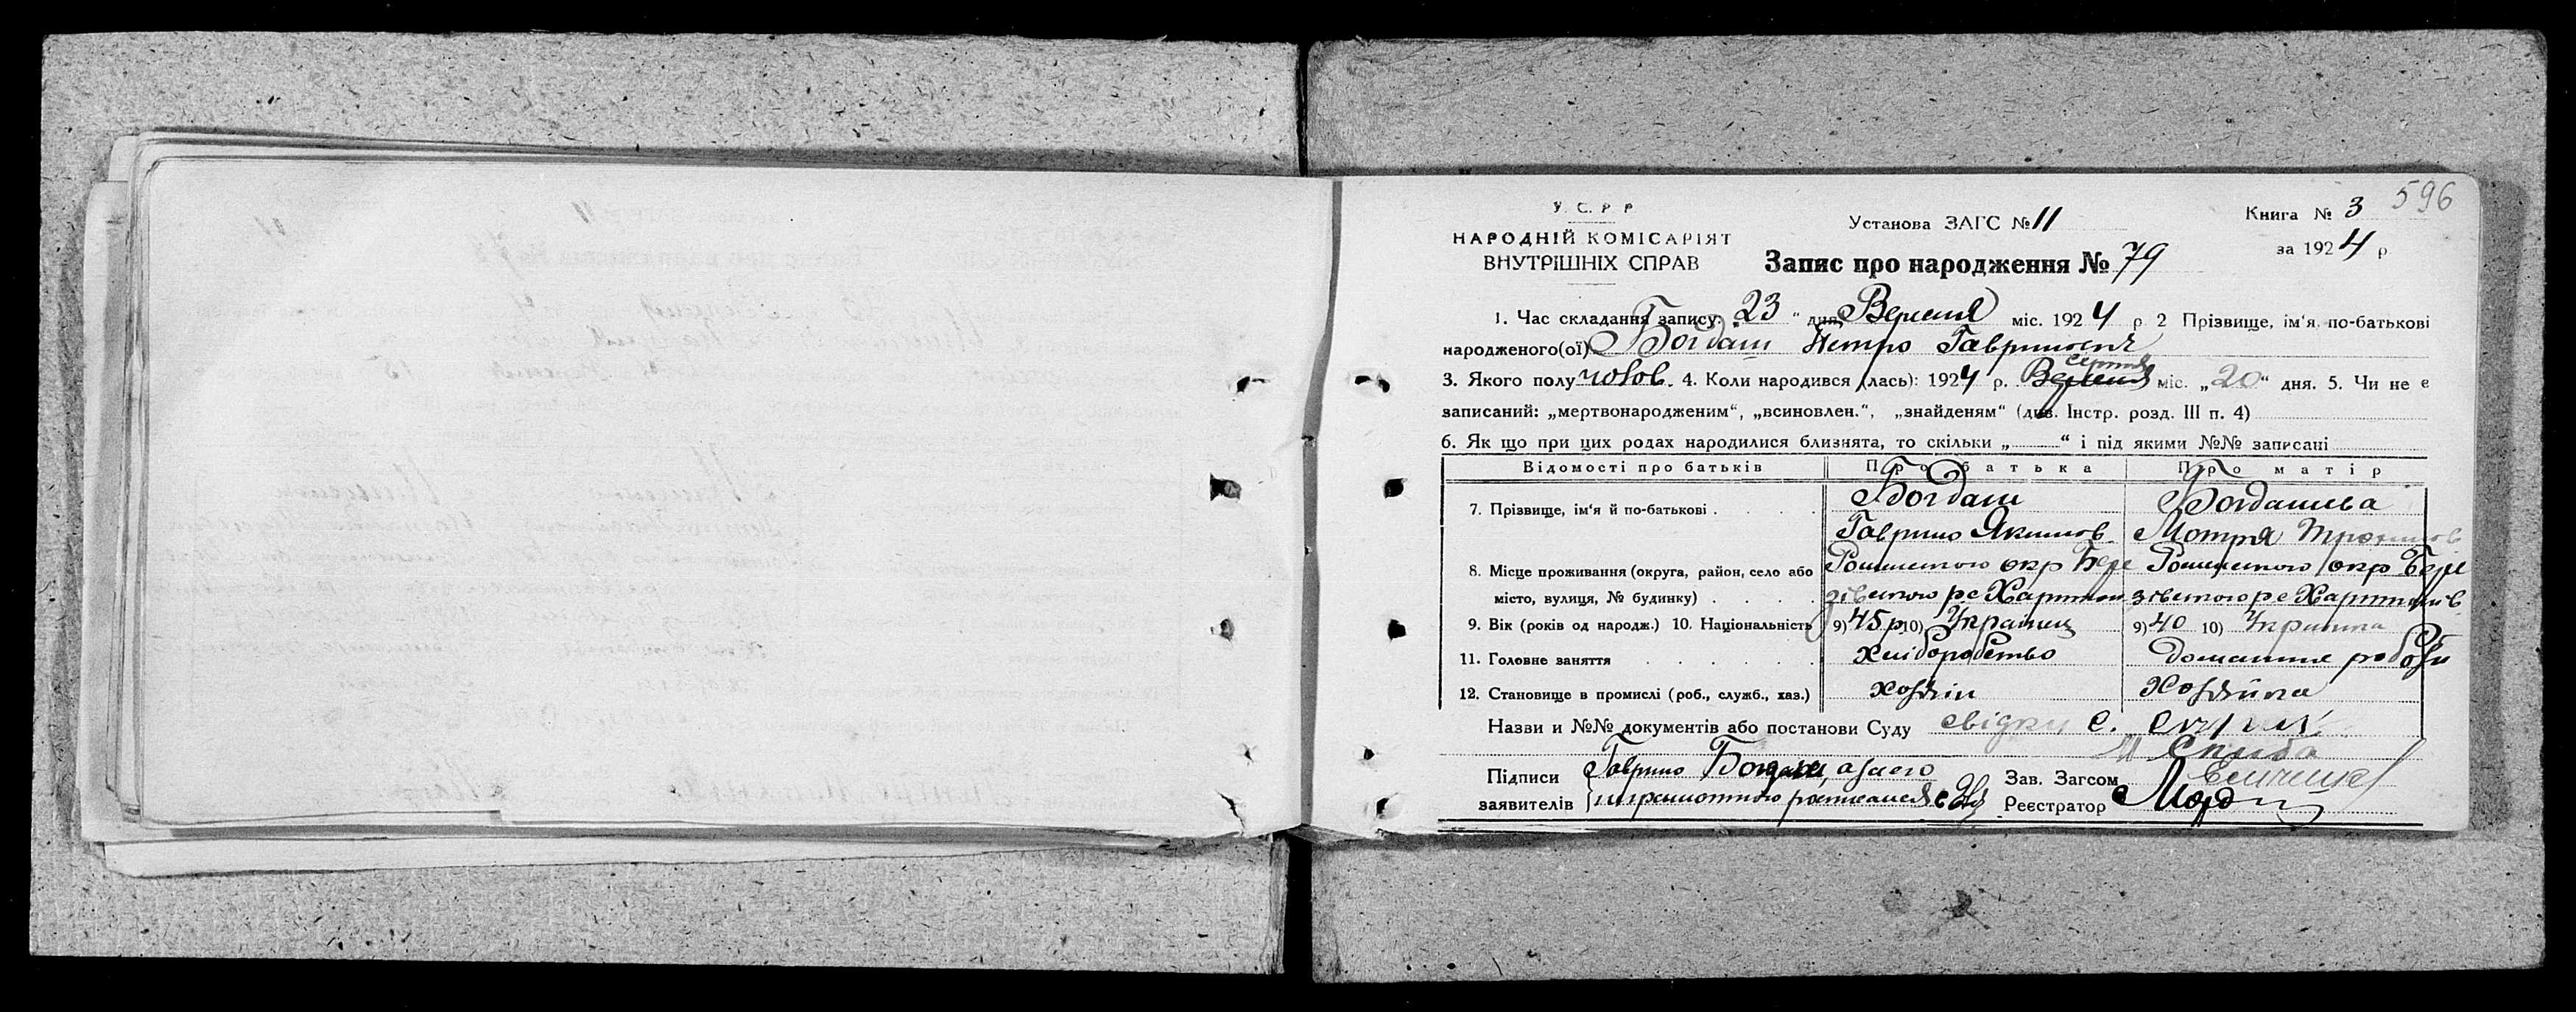 596
У. С. Р. Р.
НАРОДНІЙ КОМІСАРІЯТ
ВНУТРІШНІХ СПРАВ
Установа ЗАГС № 11
Книга № 3
за 1924 р.
Запис про народження № 79
1. Час складання запису: „23“ дня Вересня міс. 1924 р. 2 Прізвище, ім'я, по-батькові
народженого(ої) Богдан Петро Гаврилович
3. Якого полу чолов. 4. Коли народився (лась): 1924 р. Вересня серпня міс. „20“ дня. 5. Чи не є
записаний: „мертвонародженим“, „всиновлен.“, „знайденям“ (див. Інстр. розд. III п. 4)
6. Як що при цих родах народилися близнята, то скільки „ “ і під якими №№ записані
Відомості про батьків Про батька Про матір
7. Прізвище, ім'я й по-батькові Богдан Гаврило Якимов. Богданова Мотря
8. Місце проживання (округа, район, село або Роменского окр Бере Роменского окр Бере
місто, вулиця, № будинку) зівського р с зівського р с
9. Вік (років од народж.) 10. Національність 9) 45 р 10) Украинец 9) 40 10)
11. Головне заняття Хліборобство Домашня робота
12. Становище в промислі (роб., служб., хаз.) хозяін Хозяйка
Назви и №№ документів або постанови Суду свідки С.
Підписи Гаврило Богдан, а за его
заявителів неграмотного росписался
Зав. Загсом
Реєстратор